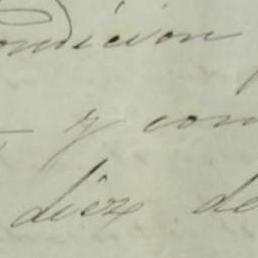 ondicion
y con
diez de